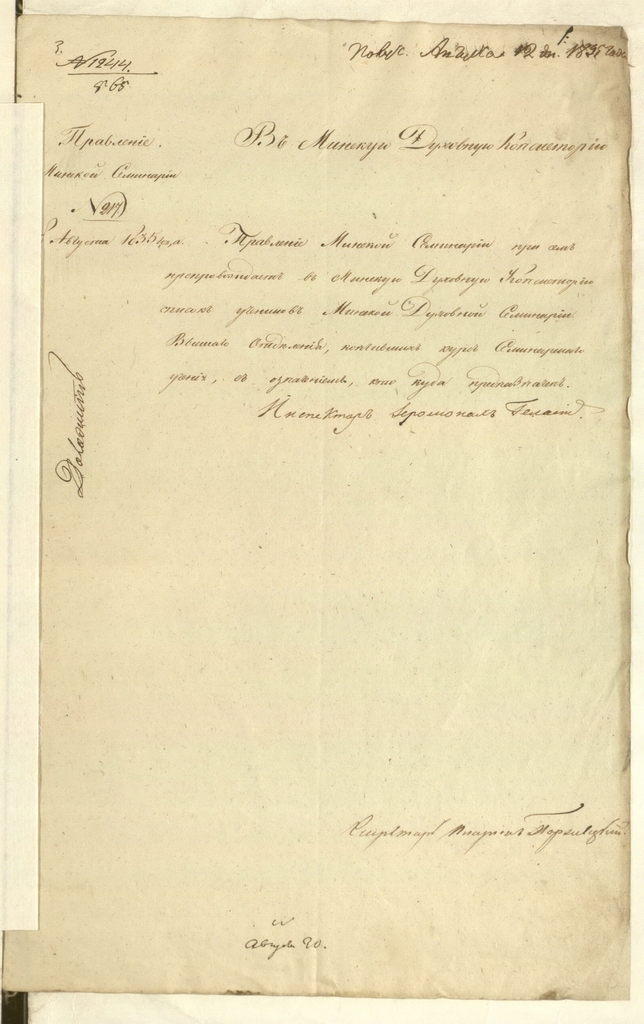 3.
№ 1244.
865
1.
Получ. Августа 12 дн. 1835 года
Правленіе
Минской Семинаріи
№ 217
Августа 1835 года.
Въ Минскую Духовную Консисторію
Правленіе Минской Семинаріи при семъ
препровождаетъ въ Минскую Духовную Консисторію
списокъ учениковъ Минской Духовной Семинаріи
Высшаго Отдѣленія, кончившихъ курсъ Семинарскаго
ученія, съ означеніемъ, кто куда предназначенъ.
Инспекторъ Іеромонахъ Геласій.
Доложить
Секретарь
Августа 20.